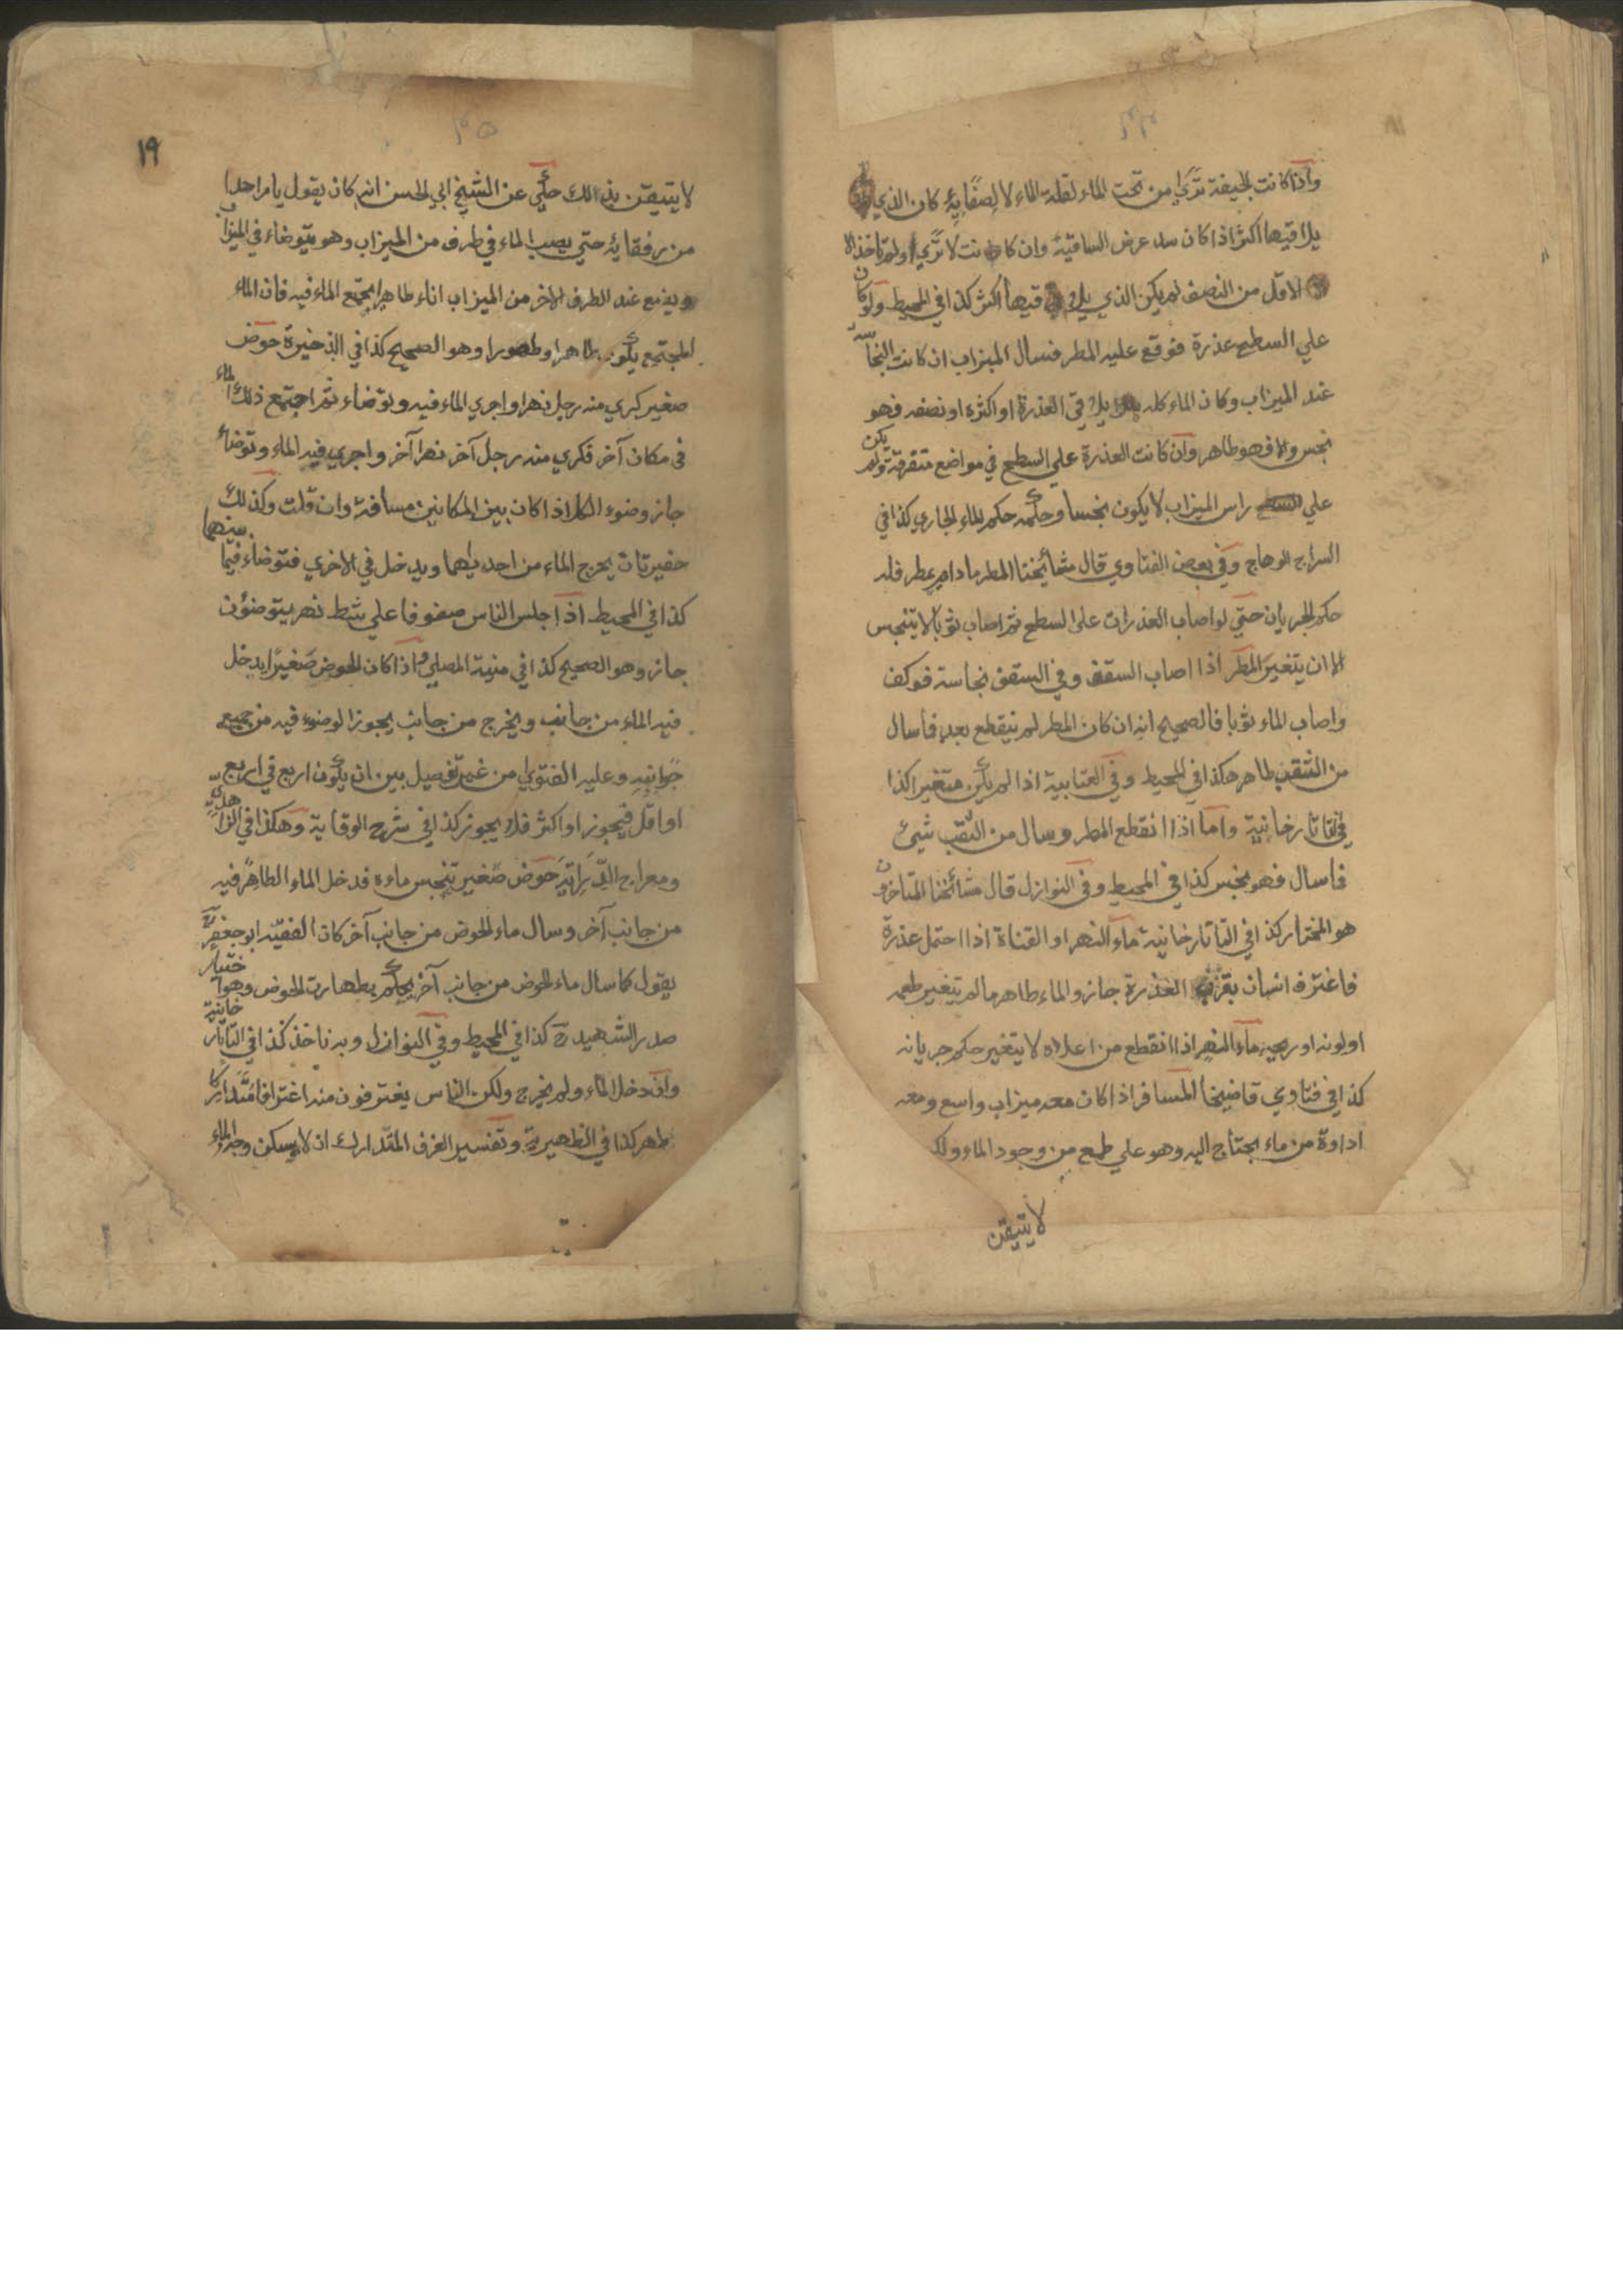 واذا كانت الجيفة تري من تحت الماء لقلة الماء لا لصفايه كان الذي
يلاقيها اكثر اذا كان سد عرض الساقية وان كانت لا تري او لم تاخذ الا
الاقل من النصف لم يكن الذي يلاقيها اكثر كذا في المحيط ولو كان
علي السطح عذرة فوقع عليه المطر فسال الميزاب ان كانت النجاسة
عند الميزاب وكان الماء كله يلاقي العذرة او اكثره او نصفه فهو
نجس والا فهو طاهر وان كانت العذرة علي السطح في مواضع متفرقة ولم يكن
علي راس الميزاب لا يكون نجسا وحكمه حكم الماء الجاري كذا في
السراج الوهاج وفي بعض الفتاوي قال مشائخنا المطر ما دام يمطر فله
حكم الجريان حتي لو اصاب العذرات علي السطح ثم اصاب ثوبا لا يتنجس
الا ان يتغير المطر اذا اصاب السقف وفي السقف نجاسة فوكف
واصاب الماء ثوبا فالصحيح انه ان كان المطر لم ينقطع بعد فما سال
من الثقب طاهر هكذا في المحيط وفي العتابية اذا لم يكن متغيرا كذا
في التاتارخانية واما اذا انقطع المطر وسال من الثقب شيئ
فما سال فهو نجس كذا في المحيط وفي النوازل قال مشائخنا المتاخرون
هو المختار كذا في التاتارخانية ماء النهر او القناة اذا احتمل عذرة
فاغترف انسان بقرب العذرة جاز والماء طاهر ما لم يتغير طعمه
او لونه او ريحه ماء النهر اذا انقطع من اعلاه لا يتغير حكم جريانه
كذا في فتاوي قاضيخا المسافر اذا كان معه ميزاب واسع ومعه
اداوة من ماء يحتاج اليه وهو علي طمع من وجود الماء ولك
لا يتيقن
١٩
لا يتيقن بذالك حكي عن الشيخ ابي الحسن انه كان يقول يامر احدا
من رفقايه حتي يصب الماء في طرف من الميزاب وهو يتوضاء في الميزاب
ويضع عند الطرف الاخر من الميزاب اناء طاهرا يجتمع الماء فيه فان الماء
المجتمع يكون طاهرا وطهورا وهو الصحيح كذا في الذخيرة حوض
صغير كري منه رجل نهرا واجري الماء فيه وتوضاء ثم اجتمع ذلك الماء
في مكان آخر فكري منه رجل آخر نهرا آخر واجري فيه الماء وتوضاء
جاز وضوء الكل اذا كان بين المكانين مسافة وان قلت وكذلك
حفيرتان يخرج الماء من احديهما ويدخل في الاخري فتوضاء فيما بينهما
كذا في المحيط اذا جلس الناس صفوفا علي شط نهر يتوضؤن
جاز وهو الصحيح كذا في منية المصلي واذا كان الحوض صغيرا يدخل
فيه الماء من جانب ويخرج من جانب يجوز الوضوء فيه من جميع
جوانبه وعليه الفتوي من غير تفصيل بين ان يكون اربع في اربع
او اقل فيجوز او اكثر فلا يجوز كذا في شرح الوقاية وهكذا في الزاهدي
ومعراج الدراية حوض صغير تنجس ماءه فدخل الماء الطاهر فيه
من جانب آخر وسال ماء الحوض من جانب آخر كان الفقيه ابو جعفر رح
يقول كما سال ماء الحوض من جانب آخر يحكم بطهارت الحوض وهو اختيار
صدر الشهيد رح كذا في المحيط وفي النوازل وبه ناخذ كذا في التاتارخانية
وان دخل الماء ولم يخرج ولكن الناس يغترفون منه اغترافا متداركا
طهر كذا في الظهيرية وتفسير الغرف المتدارك ان لا يسكن وجه الماء